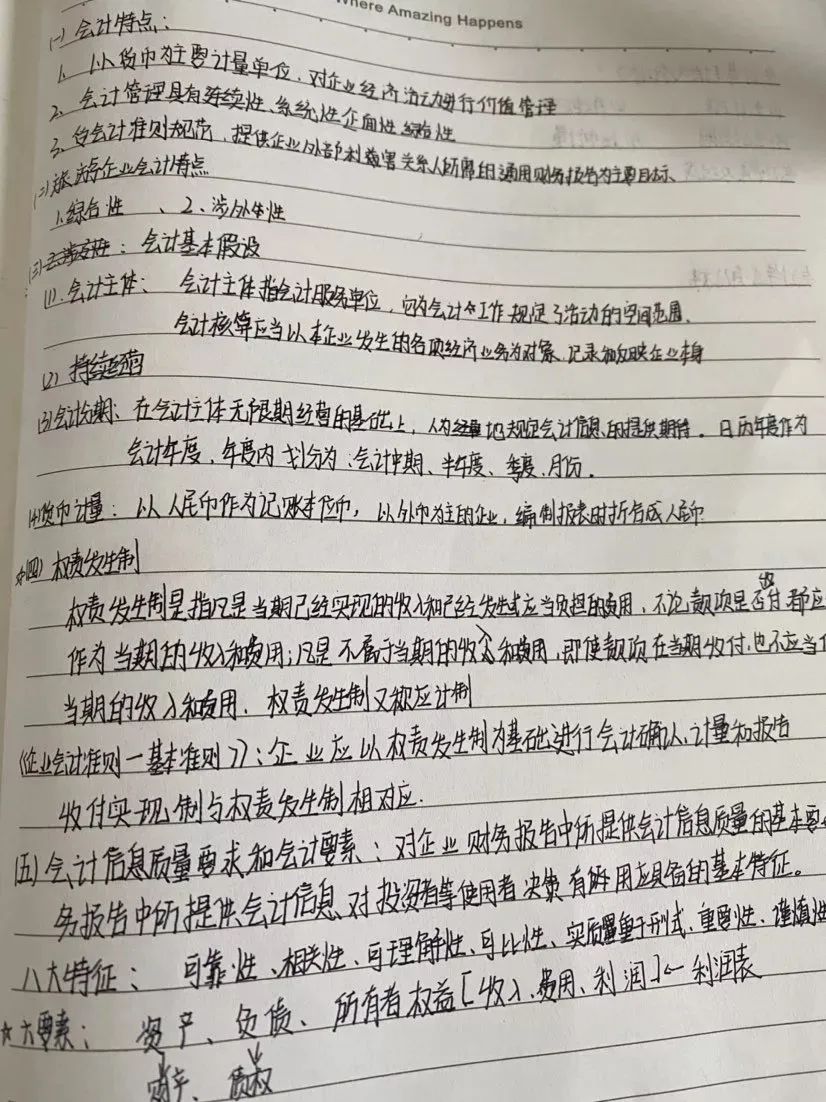 Where Amazing Happens
(一) 会计特点：
1. 以货币为主要计量单位，对企业经济活动进行价值管理
2. 会计管理具有连续性、系统性、全面性、综合性
3. 以会计准则规范，提供企业外部利益关系人所需的通用财务报告为主要目标、
(二) 旅游企业会计特点
1. 综合性 、 2、涉外性
(三) ：会计基本假设
(1). 会计主体： 会计主体指会计服务单位，它为会计工作规定了活动的空间范围.
会计核算应当以本企业发生的各项经济业务为对象，记录和反映企业本身
(2) 持续经营
(3) 会计分期：在会计主体无限期经营的基础上，人为地规定会计信息的提供期间。日历年度作为
会计年度，年度内划分为：会计中期、半年度、季度、月份.
(4) 货币计量：以人民币作为记账本位币，以外币为主的企业，编制报表时折合成人民币
☆(四) 权责发生制
权责发生制是指凡是当期已经实现的收入和已经发生或应当负担的费用，不论款项是否收付都应
作为当期的收入和费用；凡是不属于当期的收入和费用，即使款项在当期收付，也不应当作
当期的收入和费用. 权责发生制又称应计制
《企业会计准则—基本准则》：企业应以权责发生制为基础进行会计确认、计量和报告
收付实现制与权责发生制相对应.
(五) 会计信息质量要求和会计要素：对企业财务报告中所提供会计信息质量的基本要
务报告中所提供会计信息对投资者等使用者决策有用应具备的基本特征。
八大特征： 可靠性、相关性、可理解性、可比性、实质重于形式、重要性、谨慎性
☆六要素： 资产、负债、所有者权益[收入、费用、利润]←利润表
财产、债权